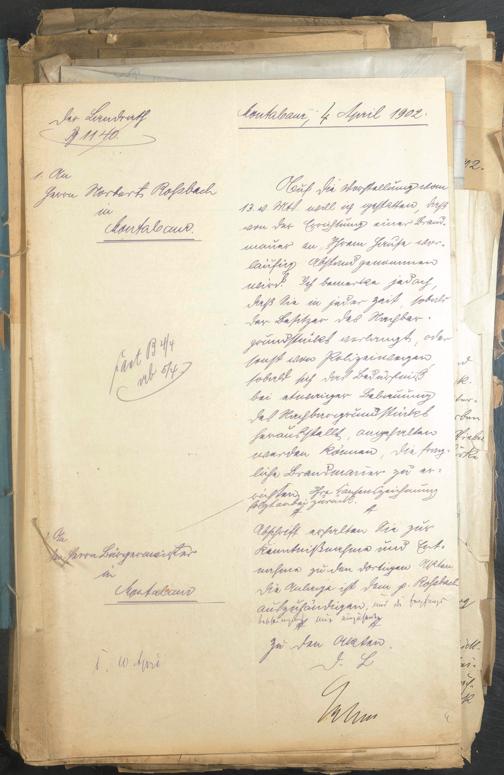 Der Landrath
B 1140.
Montabaur, 4 April 1902.
1. An
Herrn Norbert Roßbach
in
Montabaur.
Auf die Vorstellung vom
13. v. Mts. will ich gestatten, daß
von der Errichtung einer Brand-
mauer an Ihrem Hause vor-
läufig Abstand genommen
wird. Ich bemerke jedoch,
daß Sie zu jeder Zeit, sobald
der Besitzer des Nachbar-
grundstücks verlangt, oder
sonst von Polizeiwegen
sobald sich das Bedürfniß
bei etwaiger Bebauung
des Nachbargrundstücks
herausstellt, angehalten
werden können, die frag-
liche Brandmauer zu er-
richten. Ihre
folgt anbei zurück.
B 4/4
ab 5/4
An
den Herrn Bürgermeister
in
Montabaur
Abschrift erhalten Sie zur
Kenntnißnahme und Ent-
nahme zu den dortigen Akten.
Die Anlage ist dem p. Roßbach
auszuhändigen, und die Empfangs-
Zu den Akten.
D. L.
10 April